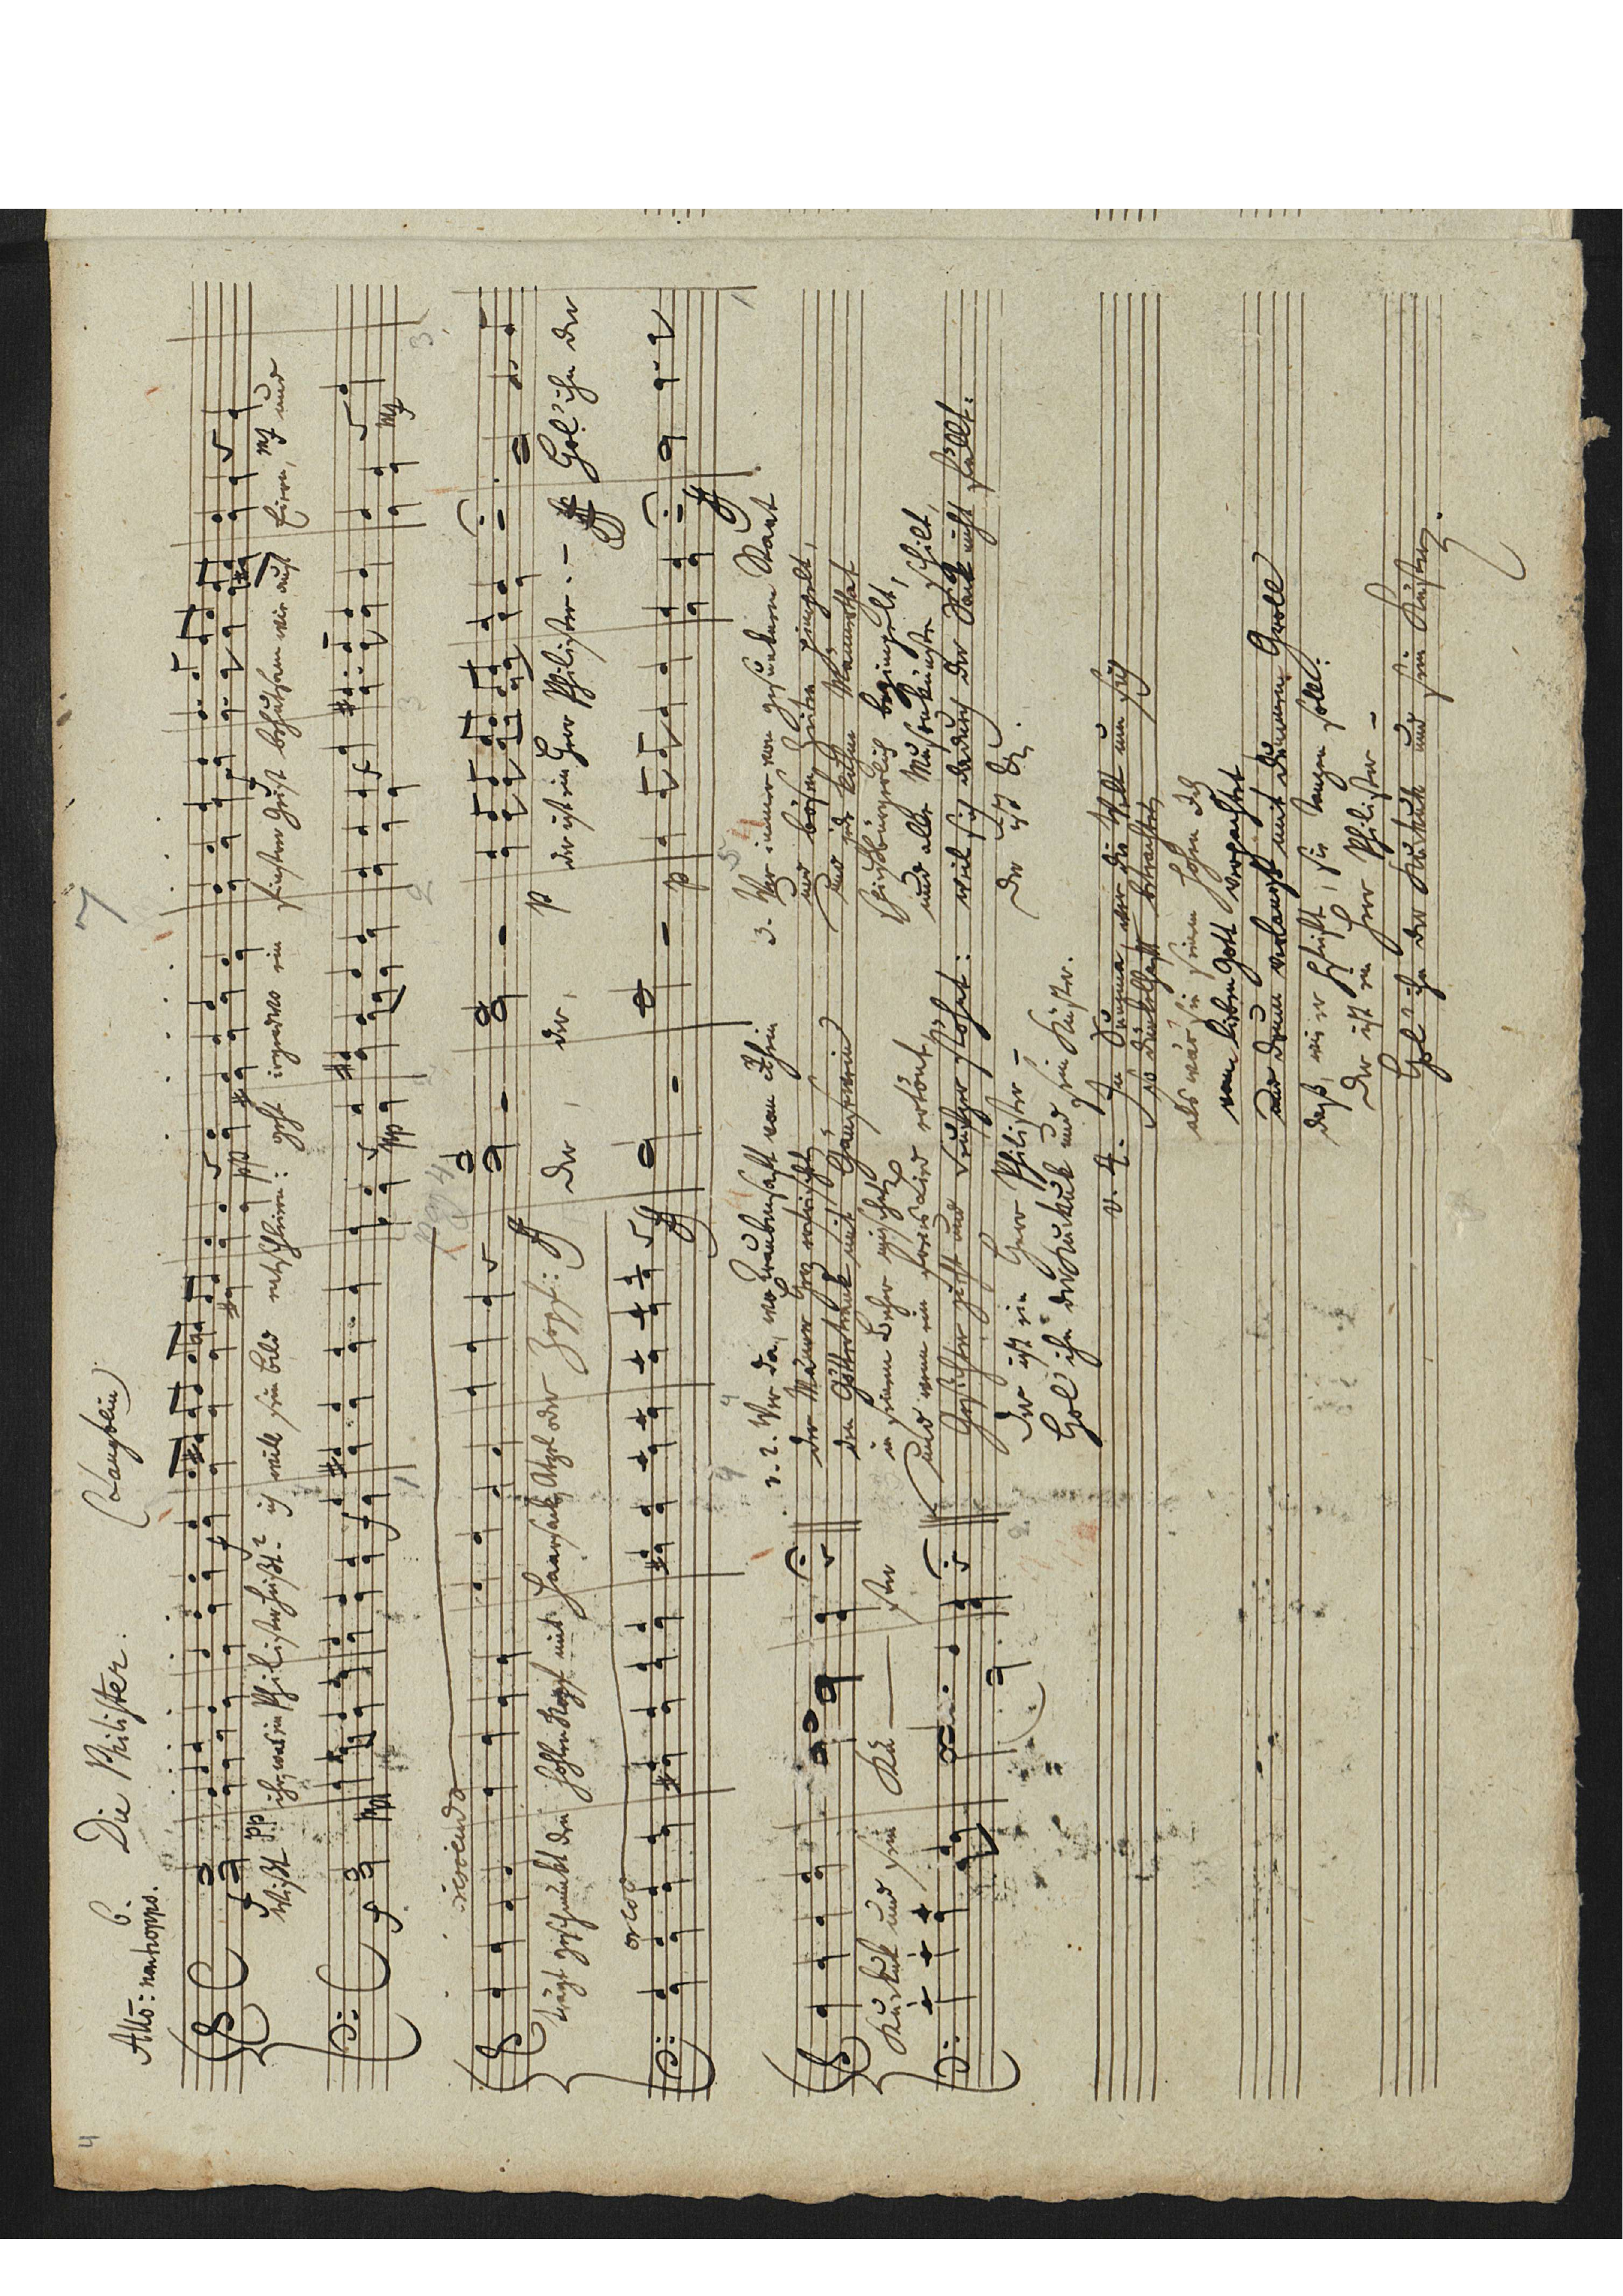 4
7
6. Die Philister. (Langbein)
Allo: ma non troppo.
f pp
Wißt ihr, was ein Philister heißt? ich will sein Bild entschleiern: geht irgendwo ein finstrer Geist behutsam wie auf Eiern, und
pp mf
crescendo
trägt geschmückt den hohlen Kopf mit Haarsack, Atzel oder Zopf: der, der, der ist ein Herr Philister. – Hol' ihn der
cresc ff p ff
Kuckuk und sein Kü — ster
v. 2. Wer da, wo Traubensaft vom Rhein
der Männer Herz erfrischt,
den Göttertrank mit Gänsewein
in seinem Becher mischet
und wenn ein frohes Lied ertönt,
Gesichter zieht und Seufzer stöhnt:
der ist ein Herr Philister –
Hol' ihn der Kuckuk und sein Küster.
3. Wer immer von gesundem Staat
und bösen Zeiten
und jede kühne Mannesthat
spießbürgerlich
und aller Musenkünste schilt,
weil sich dadurch der Sack nicht füllt:
der ist &c.
v. 4. In Summa, wer die Welt um sich
so dünkelhaft betrachtet,
als wär' sie seinem hohen Ich
vom lieben Gott verpachtet
und drum verlangt mit dummem Grolle
daß, wie er pfeift, sie tanzen solle:
Der ist ein Herr Philister –
Hol' ihn der Kuckuk und sein Küster.